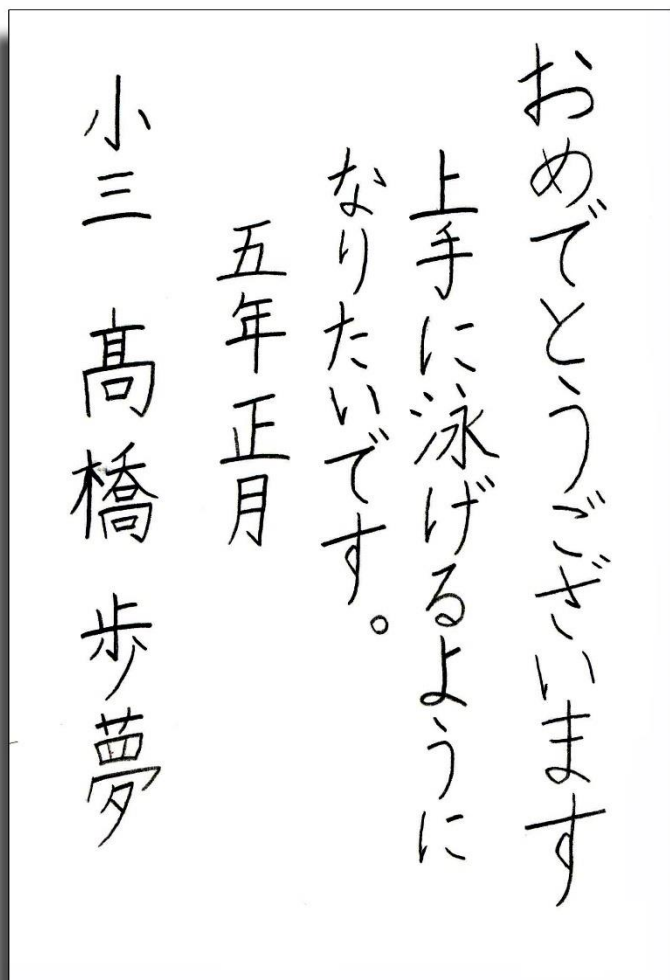 おめでとうございます
上手に泳げるように
なりたいです。
五年正月
小三 髙橋 歩夢